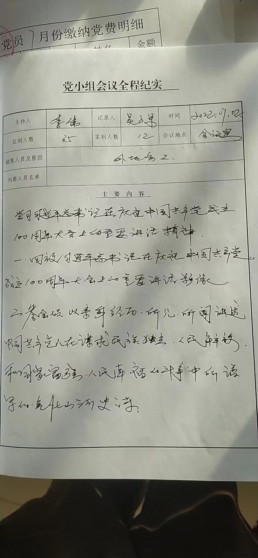 党员7月份缴纳党费明细
金额
党小组会议全程纪实
主持人 李 记录人 时间 2022.07.02
应到人数 25 实到人数 12 会议地点 会议室
缺席人员及原因 外地务工
列席人员名单
主 要 内 容
学习习近平总书记在庆祝中国共产党成立
100周年大会上的重要讲话精神
一、回放习近平总书记在庆祝中国共产党
成立100周年大会上的重要讲话
二、 以亲身经历、所见、所闻讲述
中国共产党人在谋求民族独立、人民
和国家富强、人民幸福的斗争中所谱
写的 山河史诗。